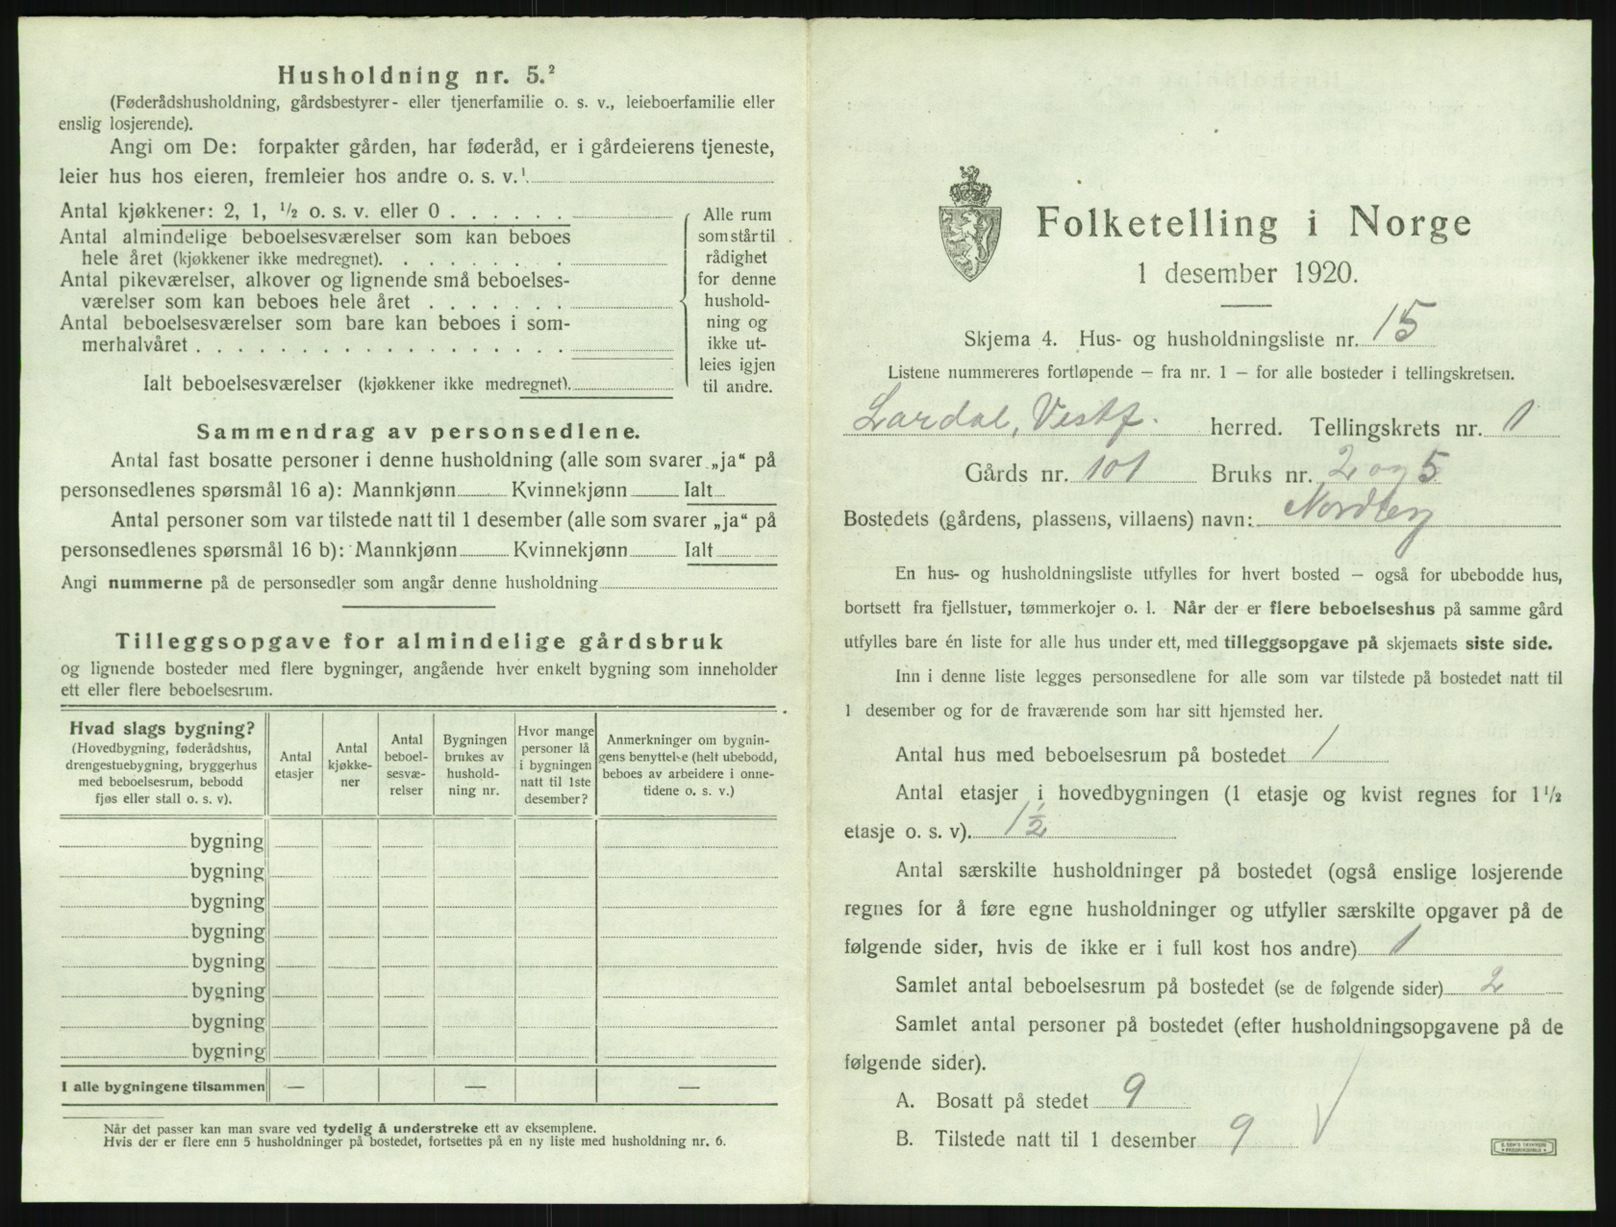 Husholdning nr. 5.²
(Føderådshusholdning, gårdsbestyrer- eller tjenerfamilie o. s. v., leieboerfamilie eller
enslig losjerende).
Angi om De: forpakter gården, har føderåd, er i gårdeierens tjeneste,
leier hus hos eieren, fremleier hos andre o. s. v.¹
Antal kjøkkener: 2, 1, ½ o. s. v. eller 0 . . . . . .
Antal almindelige beboelsesværelser som kan beboes
hele året (kjøkkener ikke medregnet). . . . . . . .
Antal pikeværelser, alkover og lignende små beboelses-
værelser som kan beboes hele året . . . . . . .
Antal beboelsesværelser som bare kan beboes i som-
merhalvåret . . . . . . . . . . . . . . . . . .
Ialt beboelsesværelser (kjøkkener ikke medregnet).
Alle rum
som står til
rådighet
for denne
hushold-
ning og
ikke ut-
leies igjen
til andre.
Sammendrag av personsedlene.
Antal fast bosatte personer i denne husholdning (alle som svarer „ja“ på
personsedlenes spørsmål 16 a): Mannkjønn Kvinnekjønn Ialt
Antal personer som var tilstede natt til 1 desember (alle som svarer „ja“ på
personsedlenes spørsmål 16 b): Mannkjønn Kvinnekjønn Ialt
Angi nummerne på de personsedler som angår denne husholdning
Tilleggsopgave for almindelige gårdsbruk
og lignende bosteder med flere bygninger, angående hver enkelt bygning som inneholder
ett eller flere beboelsesrum.
Hvad slags bygning?
(Hovedbygning, føderådshus,
drengestuebygning, bryggerhus
med beboelsesrum, bebodd
fjøs eller stall o. s. v).
Antal
etasjer
Antal
kjøkke-
ner
Antal
beboel-
sesvæ-
relser
Bygningen
brukes av
hushold-
ning nr.
Hvor mange
personer lå
i bygningen
natt til 1ste
desember?
Anmerkninger om bygnin-
gens benyttelse (helt ubebodd,
beboes av arbeidere i onne-
tidene o. s. v.)
bygning
bygning
bygning
bygning
bygning
bygning
bygning
bygning
I alle bygningene tilsammen — — —
Når det passer kan man svare ved tydelig å understreke ett av eksemplene.
Hvis der er flere enn 5 husholdninger på bostedet, fortsettes på en ny liste med husholdning nr. 6.
Folketelling i Norge
1 desember 1920.
Skjema 4. Hus- og husholdningsliste nr. 15
Listene nummereres fortløpende – fra nr. 1 – for alle bosteder i tellingskretsen.
Lardal, Vestf. herred. Tellingskrets nr. 1
Gårds nr. 101 Bruks nr. 2 og 5
Bostedets (gårdens, plassens, villaens) navn: Nordberg
En hus- og husholdningsliste utfylles for hvert bosted – også for ubebodde hus,
bortsett fra fjellstuer, tømmerkojer o. l. Når der er flere beboelseshus på samme gård
utfylles bare én liste for alle hus under ett, med tilleggsopgave på skjemaets siste side.
Inn i denne liste legges personsedlene for alle som var tilstede på bostedet natt til
1 desember og for de fraværende som har sitt hjemsted her.
Antal hus med beboelsesrum på bostedet 1
Antal etasjer i hovedbygningen (1 etasje og kvist regnes for 1½
etasje o. s. v). 1½
Antal særskilte husholdninger på bostedet (også enslige losjerende
regnes for å føre egne husholdninger og utfyller særskilte opgaver på de
følgende sider, hvis de ikke er i full kost hos andre) 1
Samlet antal beboelsesrum på bostedet (se de følgende sider) 2
Samlet antal personer på bostedet (efter husholdningsopgavene på de
følgende sider).
A. Bosatt på stedet 9
B. Tilstede natt til 1 desember 9